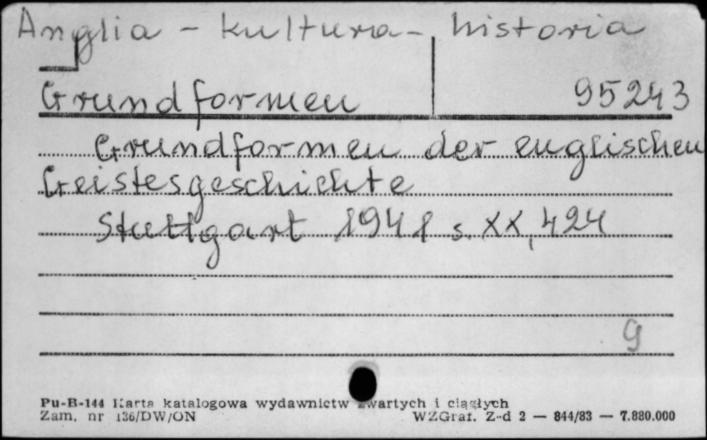 Anglia - kultura - historia
Grundformen 95243
Grundformen der englischen
Geistesgeschichte
Stuttgart 1941 s. XX, 424
9
Pu-B-144 Karta katalogowa wydawnictw zwartych i ciągłych
Zam. nr 136/DW/ON WZGraf. Z-d 2 — 844/83 — 7.880.000